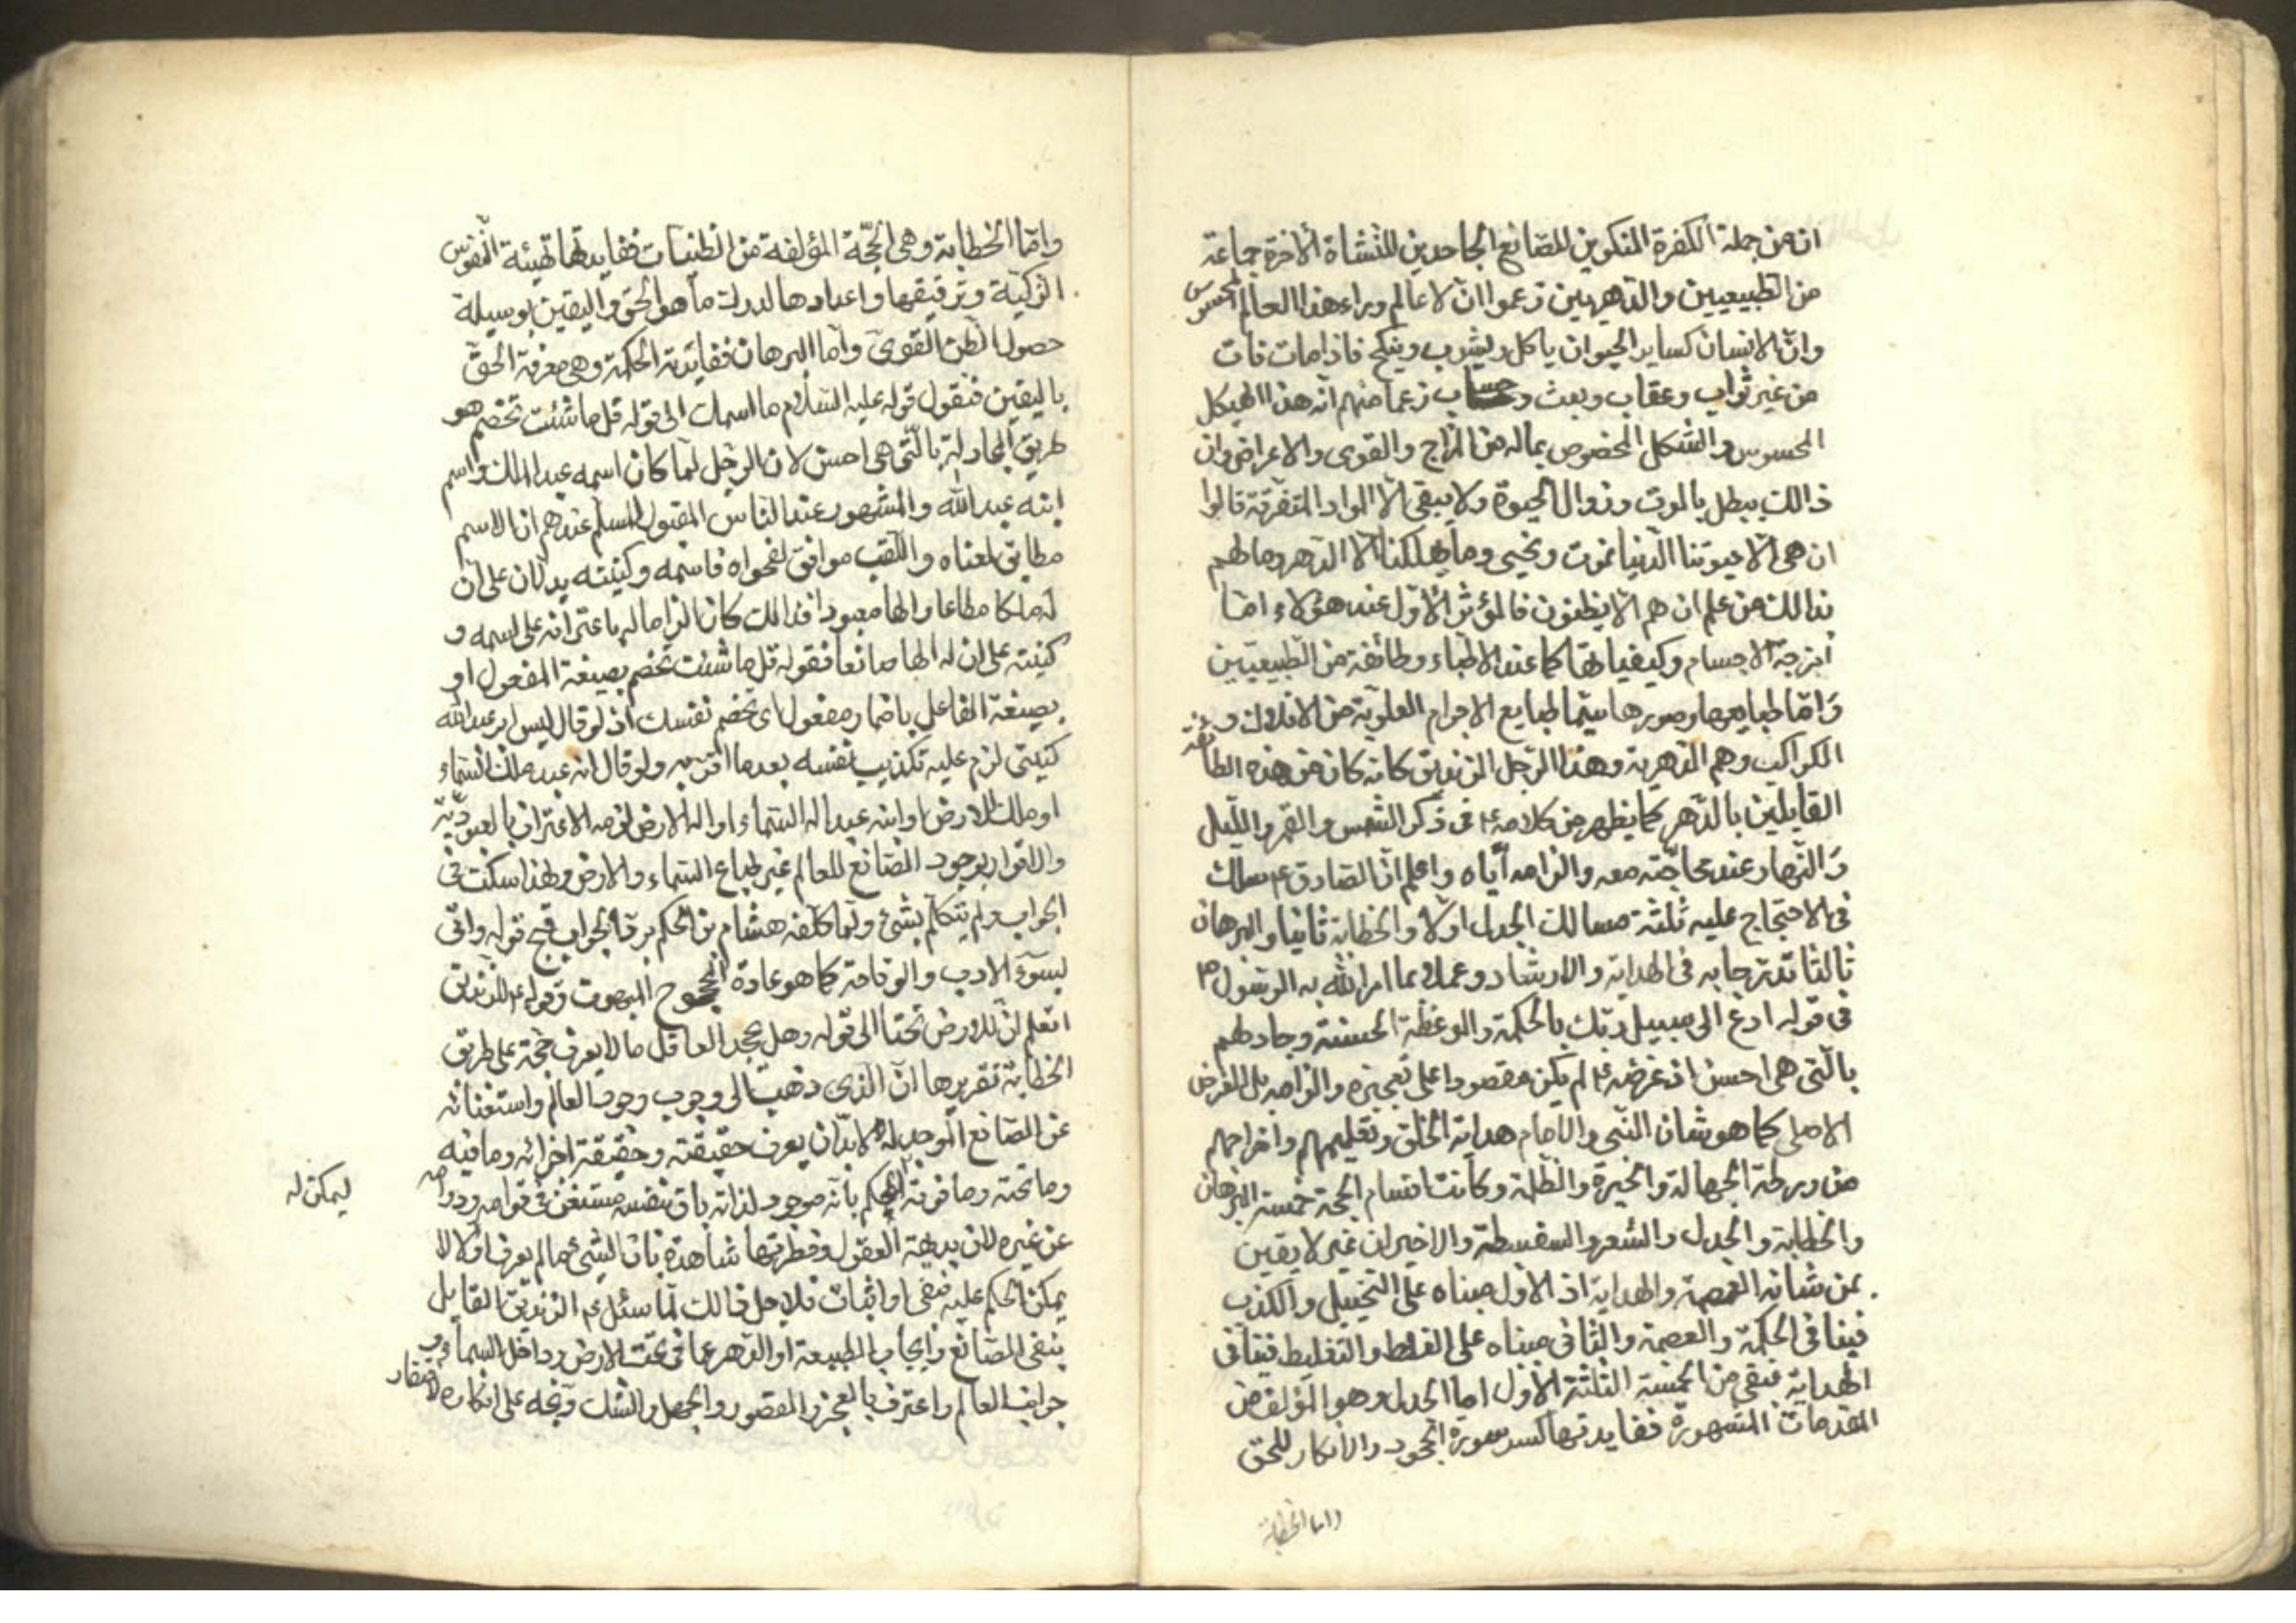 ان من جملة الكفرة المنكرين للصانع الجاحدين للنشاة الآخرة جماعة
من الطبيعيين والدهريين زعموا ان لا عالم وراء هذا العالم المحسوس
وان الانسان كساير الحيوان ياكل ويشرب وينكح فاذا مات فات
من غير ثواب وعقاب وبعث وحساب زعما منهم انه هذا الهيكل
المحسوس والشكل المخصوص بماله من المزاج والقوى والاعراض وان
ذالك يبطل بالموت وزوال الحيوة ولا يبقى الا المواد المتفرقة قالوا
ان هى الا حيوتنا الدنيا نموت ونحيى وما يهلكنا الا الدهر وما لهم
بذالك من علم ان هم الا يظنون فالمؤثر الاول عند هؤلاء اما
أمزجة الاجسام وكيفياتها كما عند الاطباء وطائفة من الطبيعيين
واما طبايعها وصورها سيما طبايع الاجرام العلوية من الافلاك و
الكواكب وهم الدهرية وهذا الرجل الزنديق كانه كان من هذه الطائفة
القايلين بالدهر كما يظهر من كلامه ع فى ذكر الشمس والقمر والليل
والنهار عند محاجته معه والزامه اياه واعلم ان الصادق ع سلك
فى الاحتجاج عليه ثلثة مسالك الجدل اولا والخطابة ثانيا والبرهان
ثالثا تدرجا به فى الهداية والارشاد وعملا بما امر الله به الرسول ص
فى قوله ادع الى سبيل ربك بالحكمة والموعظة الحسنة وجادلهم
بالتى هى احسن اذ غرضه ع لم يكن مقصودا على تعجيزه والزامه بل الغرض
الاصلى كما هو شان النبى والامام هداية الخلق وتعليمهم واخراجهم
من ورطة الجهالة والحيرة والظلمة وكانت اقسام الحجة خمسة البرهان
والخطابة والجدل والشعر والسفسطة والاخيران غير لايقين
بمن شانه العصمة والهداية اذ الاول مبناه على التخييل والكذب
فينافى الحكمة والعصمة والثانى مبناه على الغلط والتغليط فينافى
الهداية فبقى من الخمسة الثلثة الاول اما الجدل وهو المؤلف من
المقدمات المشهورة ففايدتها كسر سورة الجحود والانكار للحق
واما الخطابة
واما الخطابة وهى الحجة المؤلفة من الظنيات ففايدتها تهيئة النفوس
الزكية وترقيقها واعدادها لدرك ما هو الحق واليقين بوسيلة
حصول الظن القوى واما البرهان ففايدته الحكمة وهى معرفة الحق
باليقين فنقول قوله عليه السلام ما اسمك الى قوله قل ما شئت تخصم هو
طريق المجادلة بالتى هى احسن لان الرجل لما كان اسمه عبد الملك واسم
ابنه عبد الله والمشهور عند الناس المقبول المسلم عندهم ان الاسم
مطابق لمعناه واللقب موافق لفحواه فاسمه وكنيته يدلان على ان
له ملكا مطاعا والها معبودا فذالك كان الزاما له باعترافه على اسمه و
كنيته على ان له الها صانعا فقوله قل ما شئت تخصم بصيغة المفعول او
بصيغة الفاعل باضمار مفعول اى تخصم نفسك اذ لو قال ليس ابو عبد الله
كنيتى لزم عليه تكذيب نفسه بعد ما اقر به ولو قال انه عبد ملك السماء
او ملك الارض او ابنه عبد اله السماء او اله الارض لزمه الاعتراف بالعبودية
والاقرار بوجود الصانع للعالم غير طباع السماء والارض ولهذا سكت فى
الجواب ولم يتكلم بشئ ولما كلفه هشام بن الحكم برد الجواب قبح قوله واتى
بسوء الادب والوقاحة كما هو عادة المحجوج المبهوت وقوله ع للزنديق
اتعلم ان للارض تحتا الى قوله وهل يجحد العاقل ما لا يعرف حجة على طريق
الخطابة تقريرها ان الذى ذهب الى وجوب وجود العالم واستغنائه
عن الصانع الموجد له لابد ان يعرف حقيقته وحقيقة اجزائه وما فيه
وما تحته وما فوقه الحكم بأنه موجود لذاته باق بنفسه مستغن فى قوامه ودوامه
ليمكن له
عن غيره لان بديهة العقول وفطرتها شاهدة بان الشئ ما لم يعرف اولا لا
يمكن الحكم عليه بنفى او اثبات فلاجل ذالك لما سئل ع الزنديق القايل
بنفى الصانع وايجاب الطبيعة او الدهر عما فى تحت الارض وداخل السماء
جوانب العالم واعترف بالعجز والقصور والجهل والشك وبخه على انكاره